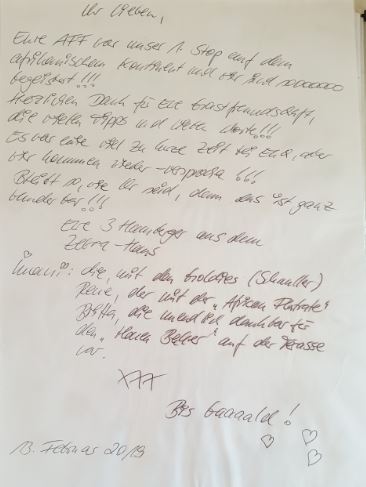 Ihr Lieben,
Eure AFF war unser 1. Stop auf dem
afrikanischen Kontinent und wir sind soooooo
begeistert !!!
Herzlichen Dank für Eure Gastfreundschaft,
die vielen Tipps und lieben Worte!!!
Es war eine viel zu kurze Zeit bei Euch, aber
wir kommen wieder - versprochen !!!
Bleibt so, wie Ihr seid, denn das ist ganz
wunderbar !!!
Eure 3 Hamburger aus dem
Zebra-Haus
Imani: die, mit den Goldies (Strauller)
René, der mit der „African
Britta, die unendlich dankbar für
den „ " auf der Terasse
war.
XXX
Bis baaaald !
13. Februar 2019